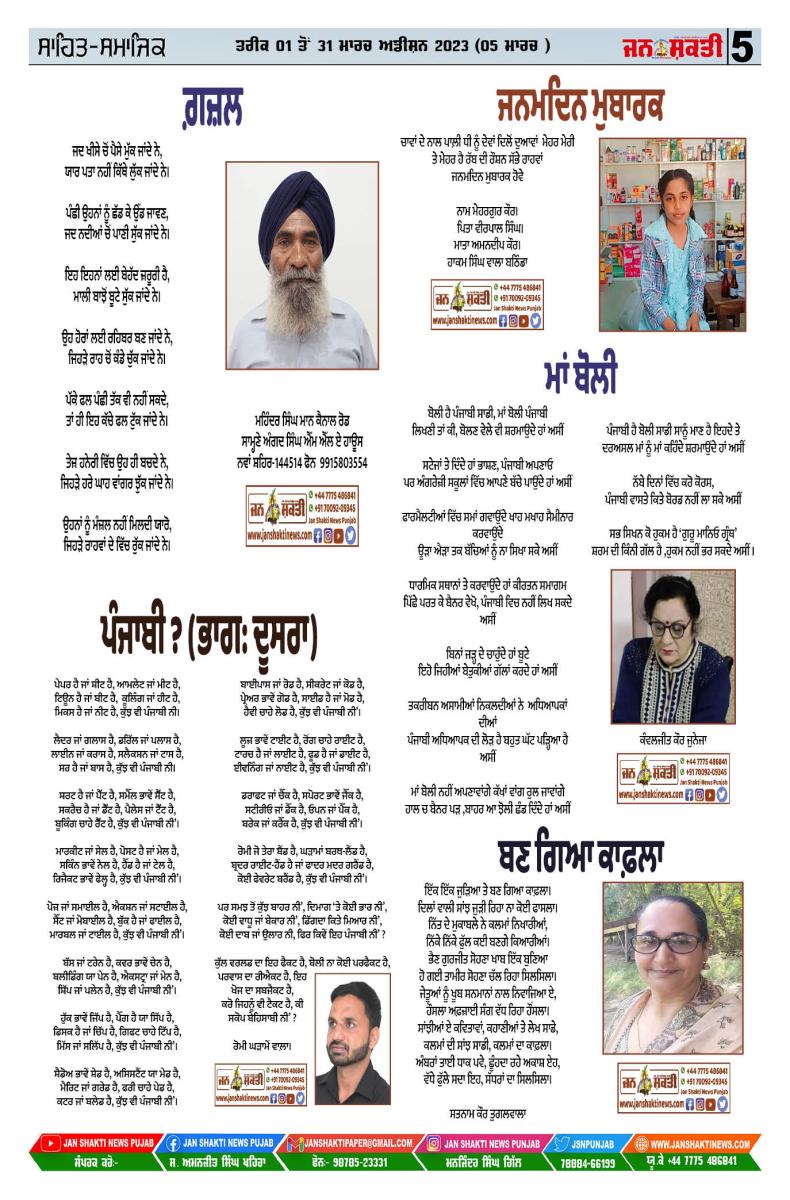 ਸਾਹਿਤ-ਸਮਾਜਿਕ
ਤਰੀਕ 01 ਤੋਂ 31 ਮਾਰਚ ਅਡੀਸ਼ਨ 2023 (05 ਮਾਰਚ )
ਜਨ ਸ਼ਕਤੀ
5
ਗ਼ਜ਼ਲ
ਜਦ ਖੀਸੇ ਚੋਂ ਪੈਸੇ ਮੁੱਕ ਜਾਂਦੇ ਨੇ,
ਯਾਰ ਪਤਾ ਨਹੀਂ ਕਿੱਥੇ ਲੁੱਕ ਜਾਂਦੇ ਨੇ।
ਪੰਛੀ ਉਹਨਾਂ ਨੂੰ ਛੱਡ ਕੇ ਉੱਡ ਜਾਵਣ,
ਜਦ ਨਦੀਆਂ ਚੋਂ ਪਾਣੀ ਸੁੱਕ ਜਾਂਦੇ ਨੇ।
ਇਹ ਇਹਨਾਂ ਲਈ ਬੇਹੱਦ ਜ਼ਰੂਰੀ ਹੈ,
ਮਾਲੀ ਬਾਝੋਂ ਬੂਟੇ ਸੁੱਕ ਜਾਂਦੇ ਨੇ।
ਉਹ ਹੋਰਾਂ ਲਈ ਰਹਿਬਰ ਬਣ ਜਾਂਦੇ ਨੇ,
ਜਿਹੜੇ ਰਾਹ ਚੋਂ ਕੰਡੇ ਚੁੱਕ ਜਾਂਦੇ ਨੇ।
ਪੱਕੇ ਫਲ ਪੰਛੀ ਤੱਕ ਵੀ ਨਹੀਂ ਸਕਦੇ,
ਤਾਂ ਹੀ ਇਹ ਕੱਚੇ ਫਲ ਟੁੱਕ ਜਾਂਦੇ ਨੇ।
ਤੇਜ਼ ਹਨੇਰੀ ਵਿੱਚ ਉਹ ਹੀ ਬਚਦੇ ਨੇ,
ਜਿਹੜੇ ਹਰੇ ਘਾਹ ਵਾਂਗਰ ਝੁੱਕ ਜਾਂਦੇ ਨੇ।
ਉਹਨਾਂ ਨੂੰ ਮੰਜ਼ਲ ਨਹੀਂ ਮਿਲਦੀ ਯਾਰੋ,
ਜਿਹੜੇ ਰਾਹਵਾਂ ਦੇ ਵਿੱਚ ਰੁੱਕ ਜਾਂਦੇ ਨੇ।
ਮਹਿੰਦਰ ਸਿੰਘ ਮਾਨ ਕੈਨਾਲ ਰੋਡ
ਸਾਮ੍ਹਣੇ ਅੰਗਦ ਸਿੰਘ ਐੱਮ ਐੱਲ ਏ ਹਾਊਸ
ਨਵਾਂ ਸ਼ਹਿਰ-144514 ਫੋਨ 9915803554
ਜਨ ਸ਼ਕਤੀ
+44 7775 486841
+91 70092-09345
Jan Shakti News Punjab
www.janshaktinews.com
ਜਨਮਦਿਨ ਮੁਬਾਰਕ
ਚਾਵਾਂ ਦੇ ਨਾਲ ਪਾਲੀ ਧੀ ਨੂੰ ਦੇਵਾਂ ਦਿਲੋਂ ਦੁਆਵਾਂ ਮੇਹਰ ਮੇਰੀ
ਤੇ ਮੇਹਰ ਹੈ ਰੱਬ ਦੀ ਰੌਸ਼ਨ ਸੱਭੇ ਰਾਹਵਾਂ
ਜਨਮਦਿਨ ਮੁਬਾਰਕ ਹੋਵੇ
ਨਾਮ ਮੇਹਰਗੁਰ ਕੌਰ।
ਪਿਤਾ ਵੀਰਪਾਲ ਸਿੰਘ।
ਮਾਤਾ ਅਮਨਦੀਪ ਕੌਰ।
ਹਾਕਮ ਸਿੰਘ ਵਾਲਾ ਬਠਿੰਡਾ
ਜਨ ਸ਼ਕਤੀ
+44 7775 486841
+91 70092-09345
Jan Shakti News Punjab
www.janshaktinews.com
ਮਾਂ ਬੋਲੀ
ਬੋਲੀ ਹੈ ਪੰਜਾਬੀ ਸਾਡੀ, ਮਾਂ ਬੋਲੀ ਪੰਜਾਬੀ
ਲਿਖਣੀ ਤਾਂ ਕੀ, ਬੋਲਣ ਵੇਲੇ ਵੀ ਸ਼ਰਮਾਉਂਦੇ ਹਾਂ ਅਸੀਂ
ਸਟੇਜਾਂ ਤੇ ਦਿੰਦੇ ਹਾਂ ਭਾਸ਼ਣ, ਪੰਜਾਬੀ ਅਪਣਾਓ
ਪਰ ਅੰਗਰੇਜ਼ੀ ਸਕੂਲਾਂ ਵਿੱਚ ਆਪਣੇ ਬੱਚੇ ਪਾਉਂਦੇ ਹਾਂ ਅਸੀਂ
ਫਾਰਮੈਲਟੀਆਂ ਵਿੱਚ ਸਮਾਂ ਗਵਾਉਂਦੇ ਖਾਹ ਮਖਾਹ ਸੈਮੀਨਾਰ
ਕਰਵਾਉਂਦੇ
ਊੜਾ ਐੜਾ ਤਕ ਬੱਚਿਆਂ ਨੂੰ ਨਾ ਸਿਖਾ ਸਕੇ ਅਸੀਂ
ਧਾਰਮਿਕ ਸਥਾਨਾਂ ਤੇ ਕਰਵਾਉਂਦੇ ਹਾਂ ਕੀਰਤਨ ਸਮਾਗਮ
ਪਿੱਛੇ ਪਰਤ ਕੇ ਬੈਨਰ ਵੇਖੋ, ਪੰਜਾਬੀ ਵਿਚ ਨਹੀਂ ਲਿਖ ਸਕਦੇ
ਅਸੀਂ
ਬਿਨਾਂ ਜੜ੍ਹ ਦੇ ਚਾਹੁੰਦੇ ਹਾਂ ਬੂਟੇ
ਇਹੋ ਜਿਹੀਆਂ ਬੇਤੁਕੀਆਂ ਗੱਲਾਂ ਕਰਦੇ ਹਾਂ ਅਸੀਂ
ਤਕਰੀਬਨ ਅਸਾਮੀਆਂ ਨਿਕਲਦੀਆਂ ਨੇ ਅਧਿਆਪਕਾਂ
ਦੀਆਂ
ਪੰਜਾਬੀ ਅਧਿਆਪਕ ਦੀ ਲੋੜ ਹੈ ਬਹੁਤ ਘੱਟ ਪੜ੍ਹਿਆ ਹੈ
ਅਸੀਂ
ਮਾਂ ਬੋਲੀ ਨਹੀਂ ਅਪਣਾਵਾਂਗੇ ਕੱਖਾਂ ਵਾਂਗ ਰੁਲ ਜਾਵਾਂਗੇ
ਹਾਲ ਚ ਬੈਨਰ ਪੜ ,ਬਾਹਰ ਆ ਝੋਲੀ ਛੰਡ ਦਿੰਦੇ ਹਾਂ ਅਸੀਂ
ਪੰਜਾਬੀ ਹੈ ਬੋਲੀ ਸਾਡੀ ਸਾਨੂੰ ਮਾਣ ਹੈ ਇਹਦੇ ਤੇ
ਦਰਅਸਲ ਮਾਂ ਨੂੰ ਮਾਂ ਕਹਿੰਦੇ ਸ਼ਰਮਾਉਂਦੇ ਹਾਂ ਅਸੀਂ
ਨੱਬੇ ਦਿਨਾਂ ਵਿੱਚ ਕਰੋ ਕੋਰਸ,
ਪੰਜਾਬੀ ਵਾਸਤੇ ਕਿਤੇ ਬੋਰਡ ਨਹੀਂ ਲਾ ਸਕੇ ਅਸੀਂ
ਸਭ ਸਿਖਨ ਕੋ ਹੁਕਮ ਹੈ 'ਗੁਰੂ ਮਾਨਿਓ ਗ੍ਰੰਥ'
ਸ਼ਰਮ ਦੀ ਕਿੰਨੀ ਗੱਲ ਹੈ ,ਹੁਕਮ ਨਹੀਂ ਭਰ ਸਕਦੇ ਅਸੀਂ ।
ਕੰਵਲਜੀਤ ਕੌਰ ਜੁਨੇਜਾ
ਜਨ ਸ਼ਕਤੀ
+44 7775 486841
+91 70092-09345
Jan Shakti News Punjab
www.janshaktinews.com
ਪੰਜਾਬੀ ? (ਭਾਗ: ਦੂਸਰਾ)
ਪੇਪਰ ਹੈ ਜਾਂ ਸ਼ੀਟ ਹੈ, ਆਮਲੇਟ ਜਾਂ ਮੀਟ ਹੈ,
ਟਿਊਨ ਹੈ ਜਾਂ ਬੀਟ ਹੈ, ਕੂਲਿੰਗ ਜਾਂ ਹੀਟ ਹੈ,
ਮਿਕਸ ਹੈ ਜਾਂ ਨੀਟ ਹੈ, ਕੁੱਝ ਵੀ ਪੰਜਾਬੀ ਨੀ।
ਲੈਦਰ ਜਾਂ ਗਲਾਸ ਹੈ, ਡਰਿੱਲ ਜਾਂ ਪਲਾਸ ਹੈ,
ਲਾਈਨ ਜਾਂ ਕਰਾਸ ਹੈ, ਸਲੈਕਸ਼ਨ ਜਾਂ ਟਾਸ ਹੈ,
ਸਰ ਹੈ ਜਾਂ ਬਾਸ ਹੈ, ਕੁੱਝ ਵੀ ਪੰਜਾਬੀ ਨੀ।
ਸ਼ਰਟ ਹੈ ਜਾਂ ਪੈਂਟ ਹੈ, ਸਮੈੱਲ ਭਾਵੇਂ ਸੈਂਟ ਹੈ,
ਸਕਰੈਚ ਹੈ ਜਾਂ ਡੈਂਟ ਹੈ, ਪੈਲੇਸ ਜਾਂ ਟੈਂਟ ਹੈ,
ਬੂਕਿੰਗ ਚਾਹੇ ਰੈਂਟ ਹੈ, ਕੁੱਝ ਵੀ ਪੰਜਾਬੀ ਨੀਂ।
ਮਾਰਕੀਟ ਜਾਂ ਸੇਲ ਹੈ, ਪੋਸਟ ਹੈ ਜਾਂ ਮੇਲ ਹੈ,
ਸਕਿੰਨ ਭਾਵੇਂ ਨੇਲ ਹੈ, ਹੈੱਡ ਹੈ ਜਾਂ ਟੇਲ ਹੈ,
ਰਿਜੈਕਟ ਭਾਵੇਂ ਫੇਲ੍ਹ ਹੈ, ਕੁੱਝ ਵੀ ਪੰਜਾਬੀ ਨੀਂ।
ਪੋਜ਼ ਜਾਂ ਸਮਾਈਲ ਹੈ, ਐਕਸ਼ਨ ਜਾਂ ਸਟਾਈਲ ਹੈ,
ਸੈੱਟ ਜਾਂ ਮੋਬਾਈਲ ਹੈ, ਬੁੱਕ ਹੈ ਜਾਂ ਫਾਈਲ ਹੈ,
ਮਾਰਬਲ ਜਾਂ ਟਾਈਲ ਹੈ, ਕੁੱਝ ਵੀ ਪੰਜਾਬੀ ਨੀਂ।
ਬੱਸ ਜਾਂ ਟਰੇਨ ਹੈ, ਕਵਰ ਭਾਵੇਂ ਚੇਨ ਹੈ,
ਬਲੀਡਿੰਗ ਯਾ ਪੇਨ ਹੈ, ਐਕਸਟ੍ਰਾ ਜਾਂ ਮੇਨ ਹੈ,
ਸਿੱਪ ਜਾਂ ਪਲੇਨ ਹੈ, ਕੁੱਝ ਵੀ ਪੰਜਾਬੀ ਨੀਂ।
ਹੁੱਕ ਭਾਵੇਂ ਜਿੱਪ ਹੈ, ਪੈੱਗ ਹੈ ਯਾ ਸਿੱਪ ਹੈ,
ਡਿਸਕ ਹੈ ਜਾਂ ਚਿੱਪ ਹੈ, ਗਿਫਟ ਚਾਹੇ ਟਿੱਪ ਹੈ,
ਮਿੱਸ ਜਾਂ ਸਲਿੱਪ ਹੈ, ਕੁੱਝ ਵੀ ਪੰਜਾਬੀ ਨੀਂ।
ਸ਼ੈਡੋਅ ਭਾਵੇਂ ਸ਼ੇਡ ਹੈ, ਅਸਿਸਟੈਂਟ ਯਾ ਮੇਡ ਹੈ,
ਮੈਰਿਟ ਜਾਂ ਗਰੇਡ ਹੈ, ਫਰੀ ਚਾਹੇ ਪੇਡ ਹੈ,
ਕਟਰ ਜਾਂ ਬਲੇਡ ਹੈ, ਕੁੱਝ ਵੀ ਪੰਜਾਬੀ ਨੀਂ।
ਬਾਈਪਾਸ ਜਾਂ ਰੋਡ ਹੈ, ਸੀਕਰੇਟ ਜਾਂ ਕੋਡ ਹੈ,
ਪ੍ਰੇਅਰ ਭਾਵੇਂ ਗੋਡ ਹੈ, ਸਾਈਡ ਹੈ ਜਾਂ ਮੋਡ ਹੈ,
ਹੈਵੀ ਚਾਹੇ ਲੋਡ ਹੈ, ਕੁੱਝ ਵੀ ਪੰਜਾਬੀ ਨੀਂ'।
ਲੂਜ਼ ਭਾਵੇਂ ਟਾਈਟ ਹੈ, ਰੌਂਗ ਚਾਹੇ ਰਾਈਟ ਹੈ,
ਟਾਰਚ ਹੈ ਜਾਂ ਲਾਈਟ ਹੈ, ਫੂਡ ਹੈ ਜਾਂ ਡਾਈਟ ਹੈ,
ਈਵਨਿੰਗ ਜਾਂ ਨਾਈਟ ਹੈ, ਕੁੱਝ ਵੀ ਪੰਜਾਬੀ ਨੀਂ।
ਡਰਾਫਟ ਜਾਂ ਚੈੱਕ ਹੈ, ਸਪੋਰਟ ਭਾਵੇਂ ਜੈੱਕ ਹੈ,
ਸਟੀਰੀਓ ਜਾਂ ਡੈੱਕ ਹੈ, ਓਪਨ ਜਾਂ ਪੈੱਕ ਹੈ,
ਬਰੇਕ ਜਾਂ ਕਰੈੱਕ ਹੈ, ਕੁੱਝ ਵੀ ਪੰਜਾਬੀ ਨੀਂ।
ਰੋਮੀ ਜੋ ਤੇਰਾ ਬੈਂਡ ਹੈ, ਘੜਾਮਾਂ ਬਰਥ-ਲੈਂਡ ਹੈ,
ਬ੍ਰਦਰ ਰਾਈਟ-ਹੈਂਡ ਹੈ ਜਾਂ ਫਾਦਰ ਮਦਰ ਗਰੈਂਡ ਹੈ,
ਕੋਈ ਫੇਵਰੇਟ ਬਰੈਂਡ ਹੈ, ਕੁੱਝ ਵੀ ਪੰਜਾਬੀ ਨੀਂ।
ਪਰ ਸਮਝ ਤੋਂ ਕੁੱਝ ਬਾਹਰ ਨੀਂ, ਦਿਮਾਗ 'ਤੇ ਕੋਈ ਭਾਰ ਨੀਂ,
ਕੋਈ ਵਾਧੂ ਜਾਂ ਬੇਕਾਰ ਨੀਂ, ਡਿੱਗਦਾ ਕਿਤੇ ਮਿਆਰ ਨੀਂ,
ਕੋਈ ਦਾਬ ਜਾਂ ਉਲਾਰ ਨੀ, ਫਿਰ ਕਿਵੇਂ ਇਹ ਪੰਜਾਬੀ ਨੀਂ ?
ਕੁੱਲ ਵਰਲਡ ਦਾ ਇਹ ਫੈਕਟ ਹੈ, ਬੋਲੀ ਨਾ ਕੋਈ ਪਰਫੈਕਟ ਹੈ,
ਪਰਵਾਸ ਦਾ ਰੀਐਕਟ ਹੈ, ਇਹ
ਖੋਜ ਦਾ ਸਬਜੈਕਟ ਹੈ,
ਕਰੋ ਜਿਹਨੂੰ ਵੀ ਟੈਕਟ ਹੈ, ਕੀ
ਸਕੋਪ ਬੇਹਿਸਾਬੀ ਨੀਂ ?
ਰੋਮੀ ਘੜਾਮੇਂ ਵਾਲਾ।
ਜਨ ਸ਼ਕਤੀ
+44 7775 486841
+91 70092-09345
Jan Shakti News Punjab
www.janshaktinews.com
ਬਣ ਗਿਆ ਕਾਫ਼ਲਾ
ਇੱਕ ਇੱਕ ਜੁੜਿਆ ਤੇ ਬਣ ਗਿਆ ਕਾਫ਼ਲਾ।
ਦਿਲਾਂ ਵਾਲੀ ਸਾਂਝ ਜੁੜੀ ਰਿਹਾ ਨਾ ਕੋਈ ਫਾਸਲਾ।
ਨਿੱਤ ਦੇ ਮੁਕਾਬਲੇ ਨੇ ਕਲਮਾਂ ਨਿਖਾਰੀਆਂ,
ਨਿੱਕੇ ਨਿੱਕੇ ਫੁੱਲ ਕਈ ਬਣਗੇ ਕਿਆਰੀਆਂ।
ਭੈਣ ਗੁਰਜੀਤ ਸੋਹਣਾ ਖ਼ਾਬ ਇੱਕ ਬੁਣਿਆ
ਹੋ ਗਈ ਤਾਮੀਰ ਸੋਹਣਾ ਚੱਲ ਰਿਹਾ ਸਿਲਸਿਲਾ।
ਜੇਤੂਆਂ ਨੂੰ ਖ਼ੂਬ ਸਨਮਾਨਾਂ ਨਾਲ ਨਿਵਾਜਿਆ ਏ,
ਹੌਸਲਾ ਅਫ਼ਜ਼ਾਈ ਸੰਗ ਵੱਧ ਰਿਹਾ ਹੌਂਸਲਾ।
ਸਾਂਝੀਆਂ ਏ ਕਵਿਤਾਵਾਂ, ਕਹਾਣੀਆਂ ਤੇ ਲੇਖ ਸਾਡੇ,
ਕਲਮਾਂ ਦੀ ਸਾਂਝ ਸਾਡੀ, ਕਲਮਾਂ ਦਾ ਕਾਫ਼ਲਾ।
ਅੰਬਰਾਂ ਤਾਈ ਧਾਕ ਪਵੇ, ਛੂੰਹਦਾ ਰਹੇ ਅਕਾਸ਼ ਏਹ,
ਵੱਧੇ ਫੁੱਲੇ ਸਦਾ ਇਹ, ਸੱਧਰਾਂ ਦਾ ਸਿਲਸਿਲਾ।
ਸਤਨਾਮ ਕੌਰ ਤੁਗਲਵਾਲਾ
ਜਨ ਸ਼ਕਤੀ
+44 7775 486841
+91 70092-09345
Jan Shakti News Punjab
www.janshaktinews.com
JAN SHAKTI NEWS PUJAB
JAN SHAKTI NEWS PUJAB
JANSHAKTIPAPER@GMAIL.COM
JAN SHAKTI NEWS PUNJAB
JSNPUNJAB
WWW.JANSHAKTINEWS.COM
ਸੰਪਰਕ ਕਰੋ:-
ਸ. ਅਮਨਜੀਤ ਸਿੰਘ ਖਹਿਰਾ
ਫੋਨ:- 98785-23331
ਮਨਜਿੰਦਰ ਸਿੰਘ ਗਿੱਲ
78884-66199
ਯੂ.ਕੇ +44 7775 486841